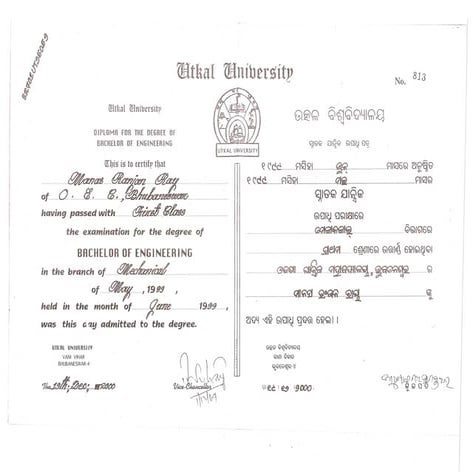 Utkal University
No. 813
Utkal University
DIPLOMA FOR THE DEGREE OF
BACHELOR OF ENGINEERING
This is to certify that
Manas Ranjan Ray
of O. E. C., Bhubaneswar
having passed with First Class
the examination for the degree of
BACHELOR OF ENGINEERING
in the branch of Mechanical
of May, 1999,
held in the month of June 1999,
was this day admitted to the degree.
UTKAL UNIVERSITY
VANI VIHAR
BHUBANESWAR-4
The 13th, Dec, 2000
Vice-Chancellor
UTKAL UNIVERSITY
ଉତ୍କଳ ବିଶ୍ୱବିଦ୍ୟାଳୟ
ସ୍ନାତକ ଯାନ୍ତ୍ରିକ ଉପାଧି ପତ୍ର
୧୯୯୯ ମସିହା ଜୁନ ମାସରେ ଅନୁଷ୍ଠିତ
୧୯୯୯ ମସିହା ମଇ ମାସର
ସ୍ନାତକ ଯାନ୍ତ୍ରିକ
ଉପାଧି ପରୀକ୍ଷାରେ
ବିଭାଗରେ
ପ୍ରଥମ ଶ୍ରେଣୀରେ ଉତ୍ତୀର୍ଣ୍ଣ ହୋଇଥିବା
ର
ମାନସ ରଞ୍ଜନ ରାୟ ଙ୍କୁ
ଅଦ୍ୟ ଏହି ଉପାଧି ପ୍ରଦତ୍ତ ହେଲା ।
ଉତ୍କଳ ବିଶ୍ୱବିଦ୍ୟାଳୟ
ବାଣୀ ବିହାର
ଭୁବନେଶ୍ୱର-୪